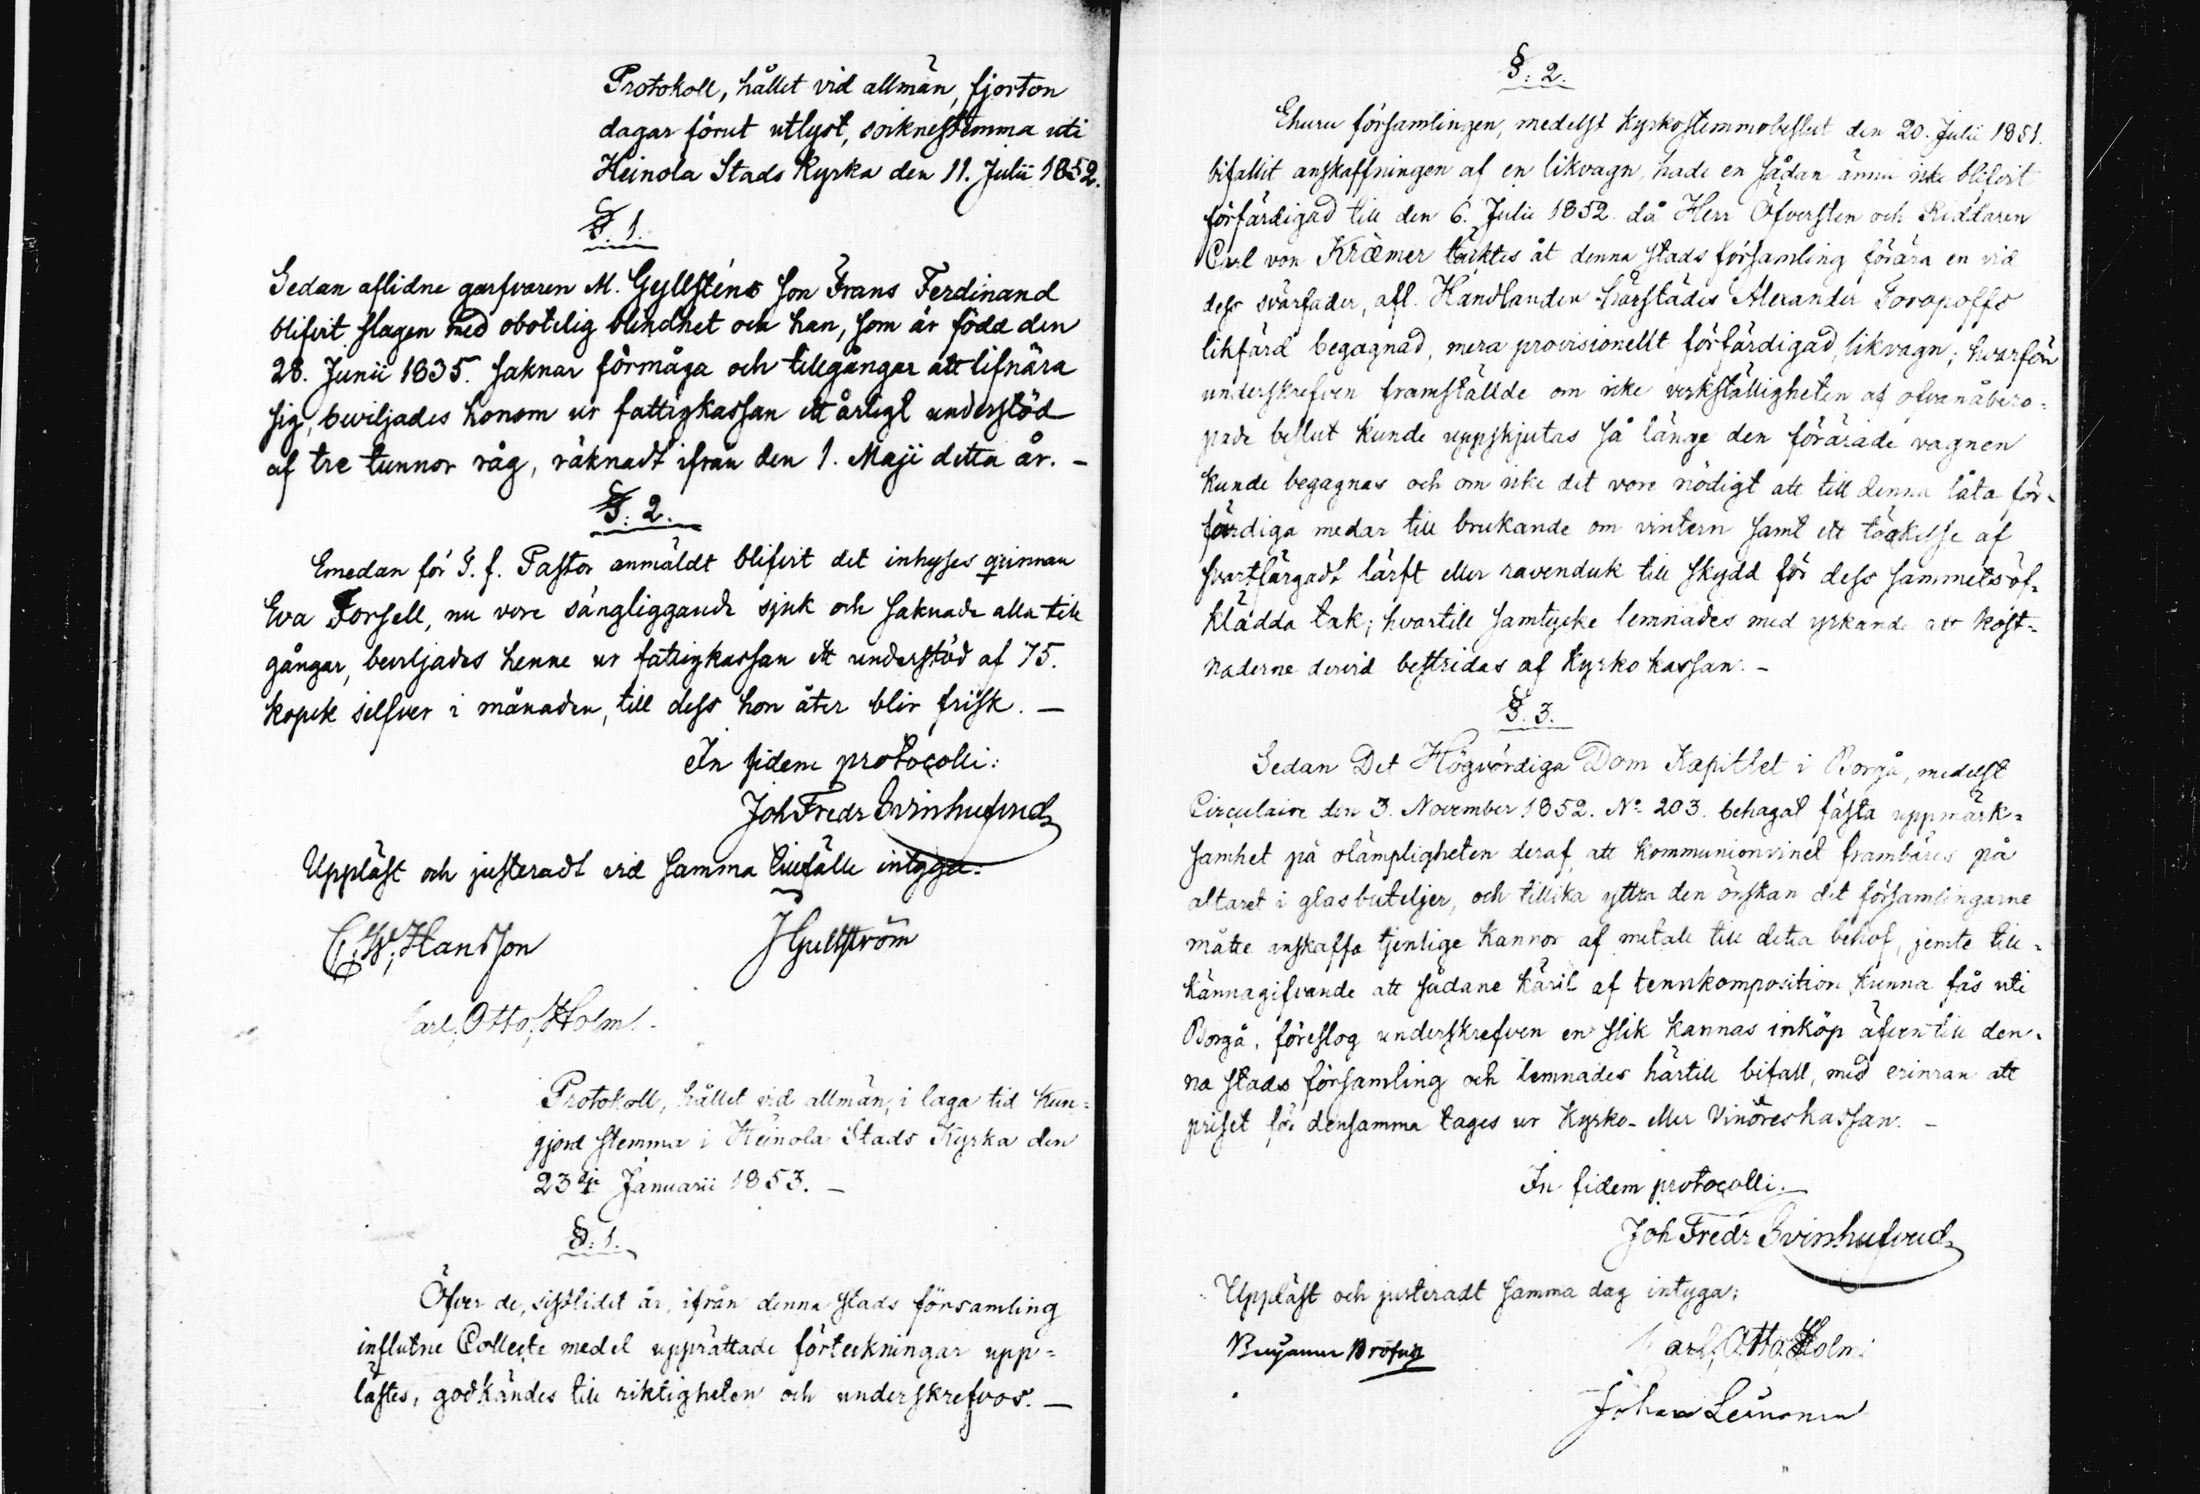 Protokoll, hållet vid allmän, fjorton
dagar förut utlyst, socknestemma uti
Heinola Stads Kyrka den 11. Julii 1852.
§. 1.
Sedan aflidne garfvaren M. Gyllsténs son Frans Ferdinand
blifvit slagen med obotelig blindhet och han, som är född den
28. Junii 1835. saknar förmåga och tillgångar att lifnära
sig, beviljades honom ur fattigkassan ett årligt understöd
af tre tunnor råg, räknadt ifrån den 1. Maji detta år. –
§. 2.
Emedan för T. f. Pastor anmäldt blifvit det inhyses qvinnan
Eva Forsell, nu vore sängliggande sjuk och saknade alla till
gångar, beviljades henne ur fattigkassan ett understöd af 75.
kopek silfver i månaden, till dess hon åter blir frisk. –
In fidem protocolli:
Joh Fredr Svinhufvud
Uppläst och justeradt vid samma tillfälle intyga:
C. W. Hansson J Gullström
Carl. Otto. Holm.
Protokoll, hållet vid allmän, i laga tid kun=
gjord stemma i Heinola Stads Kyrka den
23dje Januarii 1853. –
§. 1.
Öfver de, sistlidet år, ifrån denna stads församling
influtne Collecte medel upprättade förteckningar upp=
lästes, godkändes till riktigheten och underskrefvos. –
§. 2.
Ehuru församlingen, medelst Kyrkostemmobeslut den 20. Julii 1851.
bifallit anskaffningen af en likvagn, hade en sådan ännu icke blifvit
förfärdigad till den 6. Julii 1852. då Herr Öfversten och Riddaren
Carl von Kræmer täcktes åt denna stads församling förära en vid
dess svärfader, afl. Handlanden härstädes Alexander Toropoffs
likfärd begagnad, mera provisionellt förfärdigad likvagn; hvarför
underskrefven framställde om icke verkställigheten af ofvanåbero=
pade beslut kunde uppskjutas så länge den förärade vagnen
kunde begagnas och om icke det vore nödigt att till denna låta för=
färdiga medar till brukande om vintern samt ett täckelse af
svartfärgadt lärft eller ravenduk till skydd för dess sammetsöf=
klädda tak; hvartill samtycke lemnades med yrkande att kost=
naderne dervid bestridas af Kyrkokassan. –
§. 3.
Sedan Det Högvördiga Dom Kapitlet i Borgå, medelst
Circulaire den 3. November 1852. No 203. behagat fästa uppmärk=
samhet på olämpligheten deraf att kommunionvinet frambäres på
altaret i glasbuteljer, och tillika yttra den önskan det församlingarne
måtte anskaffa tjenlige kannor af metall till detta behof, jemte till=
kännagifvande att sådane käril af tennkomposition kunna fås uti
Borgå, föreslog underskrefven en slik kannas inköp äfven till den=
na stads församling och lemnades härtill bifall, med erinran att
priset för densamma tages ur Kyrko- eller Vinöreskassan. –
In fidem protocolli. –
Joh Fredr Svinhufvud
Uppläst och justeradt samma dag intyga:
Carl. Otto. Holm.
Johan